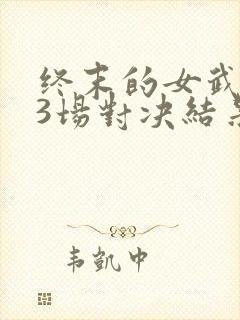 终末的女武
3場對决結
韦凱中